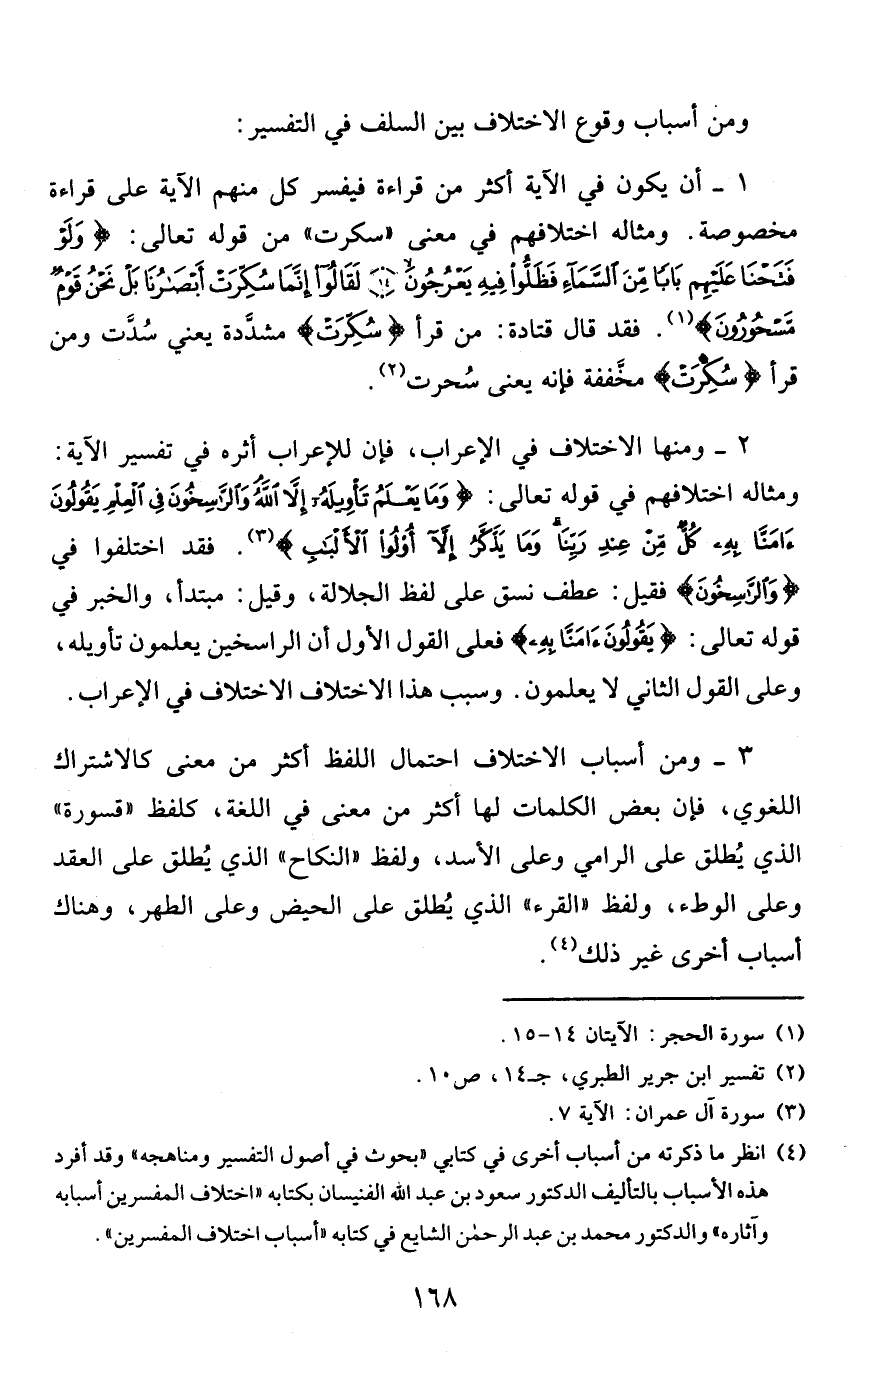 ومن أسباب وقوع الاختلاف بين السلف في التفسير:
١ ـ أن يكون في الآية أكثر من قراءة فيفسر كل منهم الآية على قراءة
مخصوصة. ومثاله اختلافهم في معنى «سكرت» من قوله تعالى: ﴿ وَلَوْ
فَتَحْنَا عَلَيْهِم بَابًا مِّنَ ٱلسَّمَآءِ فَظَلُّواْ فِيهِ يَعْرُجُونَ ۙ ﴿١٤﴾ لَقَالُوٓاْ إِنَّمَا سُكِّرَتْ أَبْصَٰرُنَا بَلْ نَحْنُ قَوْمٌ
مَّسْحُورُونَ﴾(١). فقد قال قتادة: من قرأ ﴿ سُكِّرَتْ﴾ مشدَّدة يعني سُدَّت ومن
قرأ ﴿ سُكِرَتْ﴾ مخَّففة فإنه يعنى سُحرت(٢).
٢ ـ ومنها الاختلاف في الإعراب، فإن للإعراب أثره في تفسير الآية:
ومثاله اختلافهم في قوله تعالى: ﴿ وَمَا يَعْلَمُ تَأْوِيلَهُۥٓ إِلَّا ٱللَّهُ وَٱلرَّٰسِخُونَ فِى ٱلْعِلْمِ يَقُولُونَ
ءَامَنَّا بِهِۦ كُلٌّ مِّنْ عِندِ رَبِّنَا ۗ وَمَا يَذَّكَّرُ إِلَّآ أُوْلُواْ ٱلْأَلْبَٰبِ ﴾(٣). فقد اختلفوا في
﴿ وَٱلرَّٰسِخُونَ﴾ فقيل: عطف نسق على لفظ الجلالة، وقيل: مبتدأ، والخبر في
قوله تعالى: ﴿ يَقُولُونَ ءَامَنَّا بِهِۦ﴾ فعلى القول الأول أن الراسخين يعلمون تأويله،
وعلى القول الثاني لا يعلمون. وسبب هذا الاختلاف الاختلاف في الإعراب.
٣ ـ ومن أسباب الاختلاف احتمال اللفظ أكثر من معنى كالاشتراك
اللغوي، فإن بعض الكلمات لها أكثر من معنى في اللغة، كلفظ «قسورة»
الذي يُطلق على الرامي وعلى الأسد، ولفظ «النكاح» الذي يُطلق على العقد
وعلى الوطء، ولفظ «القرء» الذي يُطلق على الحيض وعلى الطهر، وهناك
أسباب أخرى غير ذلك(٤).
(١) سورة الحجر: الآيتان ١٤-١٥.
(٢) تفسير ابن جرير الطبري، جـ١٤، ص١٠.
(٣) سورة آل عمران: الآية ٧.
(٤) انظر ما ذكرته من أسباب أخرى في كتابي «بحوث في أصول التفسير ومناهجه» وقد أفرد
هذه الأسباب بالتأليف الدكتور سعود بن عبد الله الفنيسان بكتابه «اختلاف المفسرين أسبابه
وآثاره» والدكتور محمد بن عبد الرحمٰن الشايع في كتابه «أسباب اختلاف المفسرين».
١٦٨